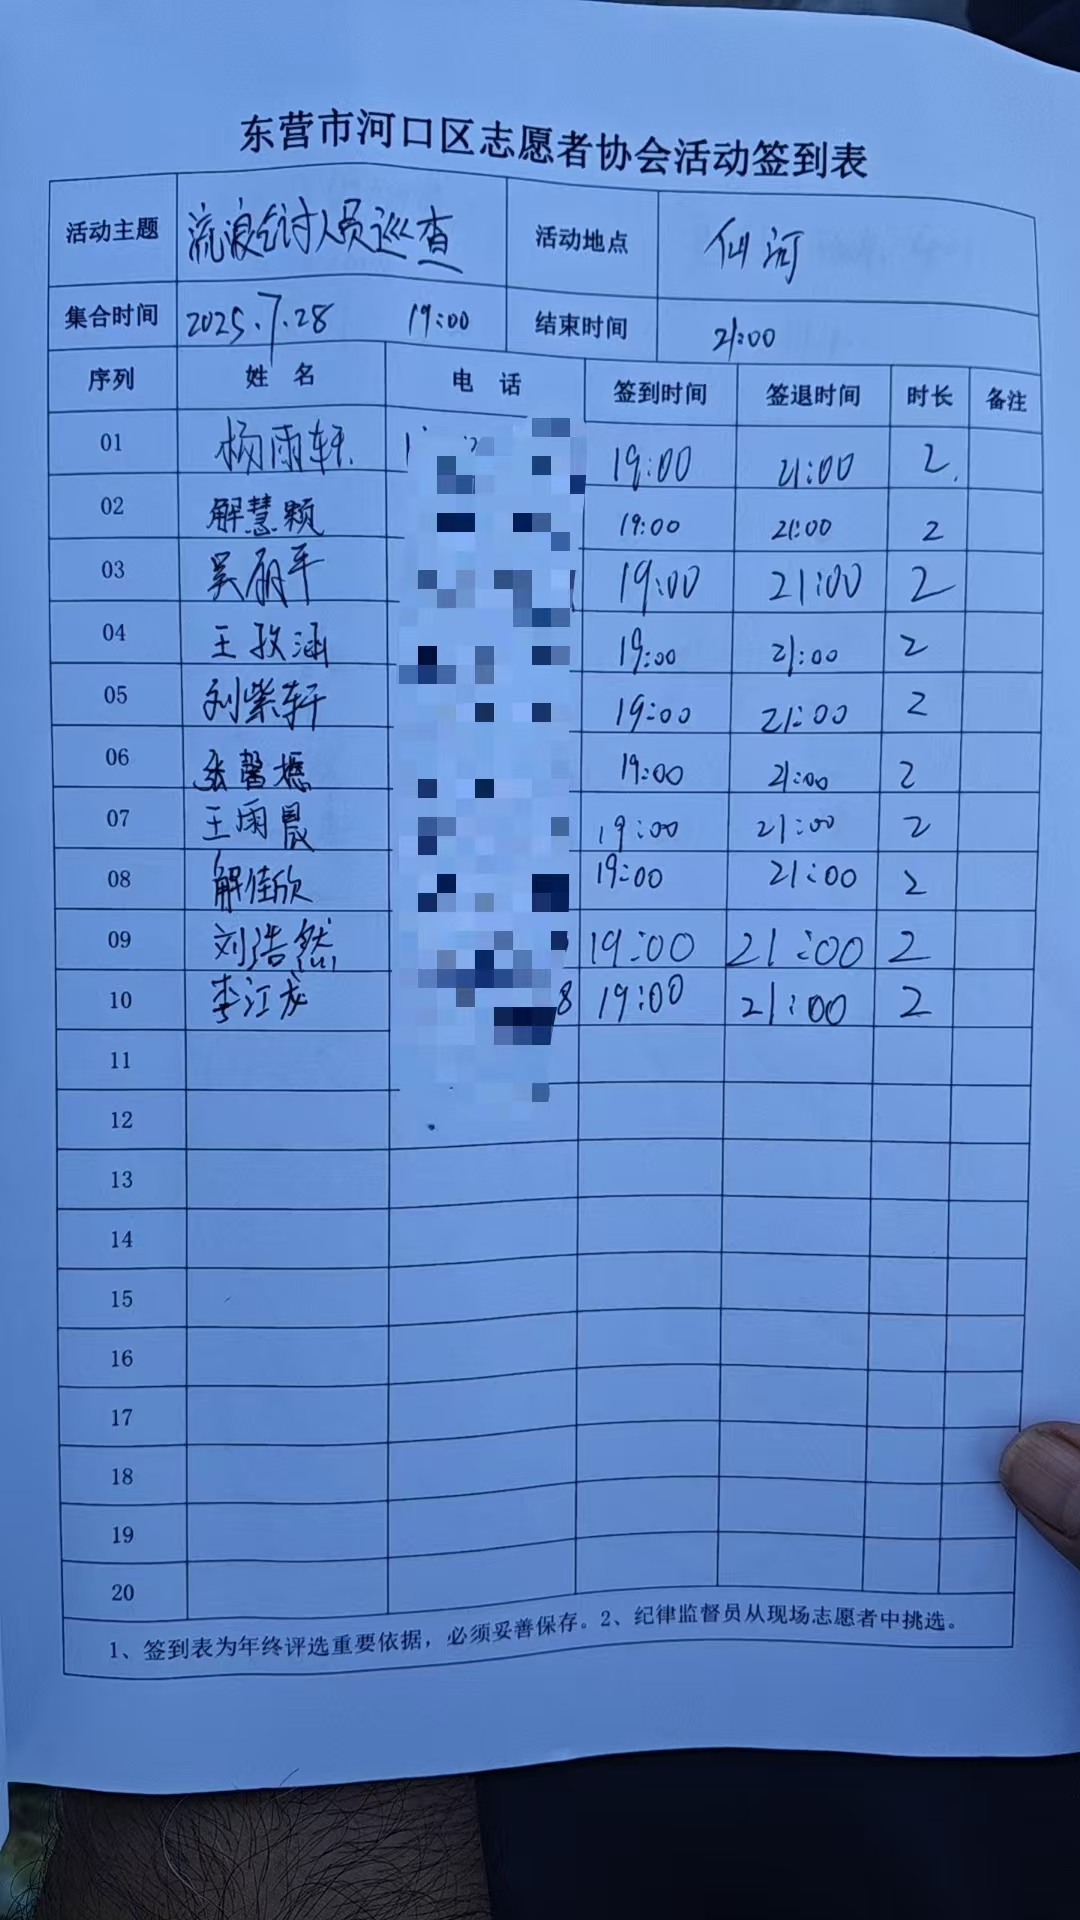 东营市河口区志愿者协会活动签到表
活动主题 流浪乞讨人员巡查 活动地点 仙河
集合时间 2025.7.28 19:00 结束时间 21:00
序列 姓名 电话 签到时间 签退时间 时长 备注
01 杨雨轩 19:00 21:00 2
02 解慧颖 19:00 21:00 2
03 吴丽平 19:00 21:00 2
04 王孜涵 19:00 21:00 2
05 刘紫轩 19:00 21:00 2
06 张馨 19:00 21:00 2
07 王雨晨 19:00 21:00 2
08 解佳欣 19:00 21:00 2
09 刘浩然 19:00 21:00 2
10 李江龙 8 19:00 21:00 2
11
12
13
14
15
16
17
18
19
20
1、签到表为年终评选重要依据，必须妥善保存。2、纪律监督员从现场志愿者中挑选。